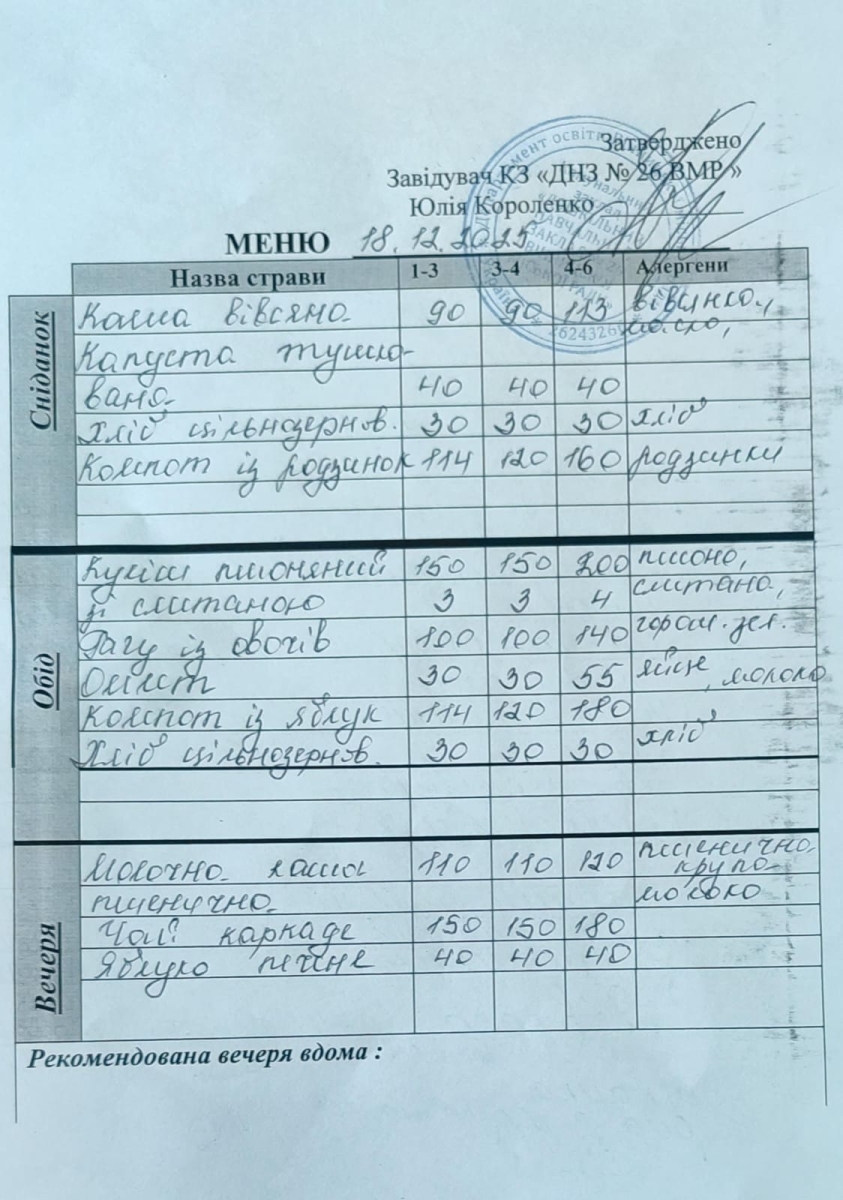 Затверджено
Завідувач КЗ «ДНЗ № 26 ВМР»
Юлія Короленко
МЕНЮ 18.12.2025
Назва страви 1-3 3-4 4-6 Алергени
Сніданок
Каша вівсяна 90 90 113 вівсянка,
масло,
Капуста тушко-
вана 40 40 40
Хліб цільнозернов. 30 30 30 хліб
Компот із родзинок 114 120 160 родзинки
Обід
Куліш пшоняний 150 150 200 пшоно,
зі сметаною 3 3 4 сметана,
Рагу із овочів 100 100 140 горош. зел.
Омлет 30 30 55 яйце, молоко
Компот із яблук 114 120 180
Хліб цільнозернов. 30 30 30 хліб
Вечеря
Молочна каша 110 110 120 пшенична крупа
пшенична молоко
Чай каркаде 150 150 180
Яблуко печене 40 40 40
Рекомендована вечеря вдома :